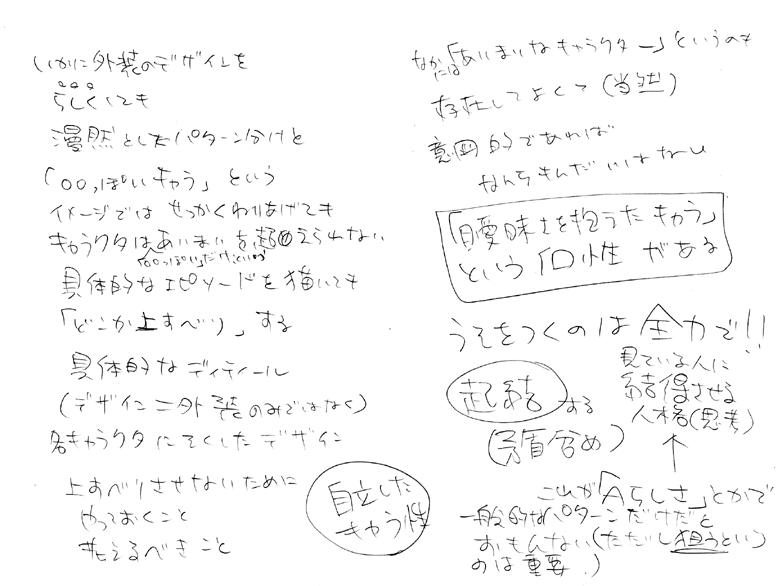 いかに外装のデザインを
らしくしても
漫然としたパターン分けと
「○○っぽいキャラ」という
イメージでは せっかくわりあげても
キャラクタはあいまいを超えられない
「○○っぽい」だけという
具体的なエピソードを描いても
「どこか上すべり」する
具体的なディティール
(デザイン=外装のみではなく)
各キャラクタにそくしたデザイン
上すべりさせないために
やっておくこと
考えるべきこと
自立した
キャラ性
なかには「あいまいなキャラクター」というのも
存在してよくて(当然)
意図的であれば
なんらもんだいはない
「曖昧さを抱えたキャラ」
という個性がある
うそをつくのは全力で!!
見ている人に
納得させる
人格(思考)
起結する
(矛盾含め)
これが「Aらしさ」とかで
一般的なパターンだけだと
おもんない(ただし狙うという
のは重要.)